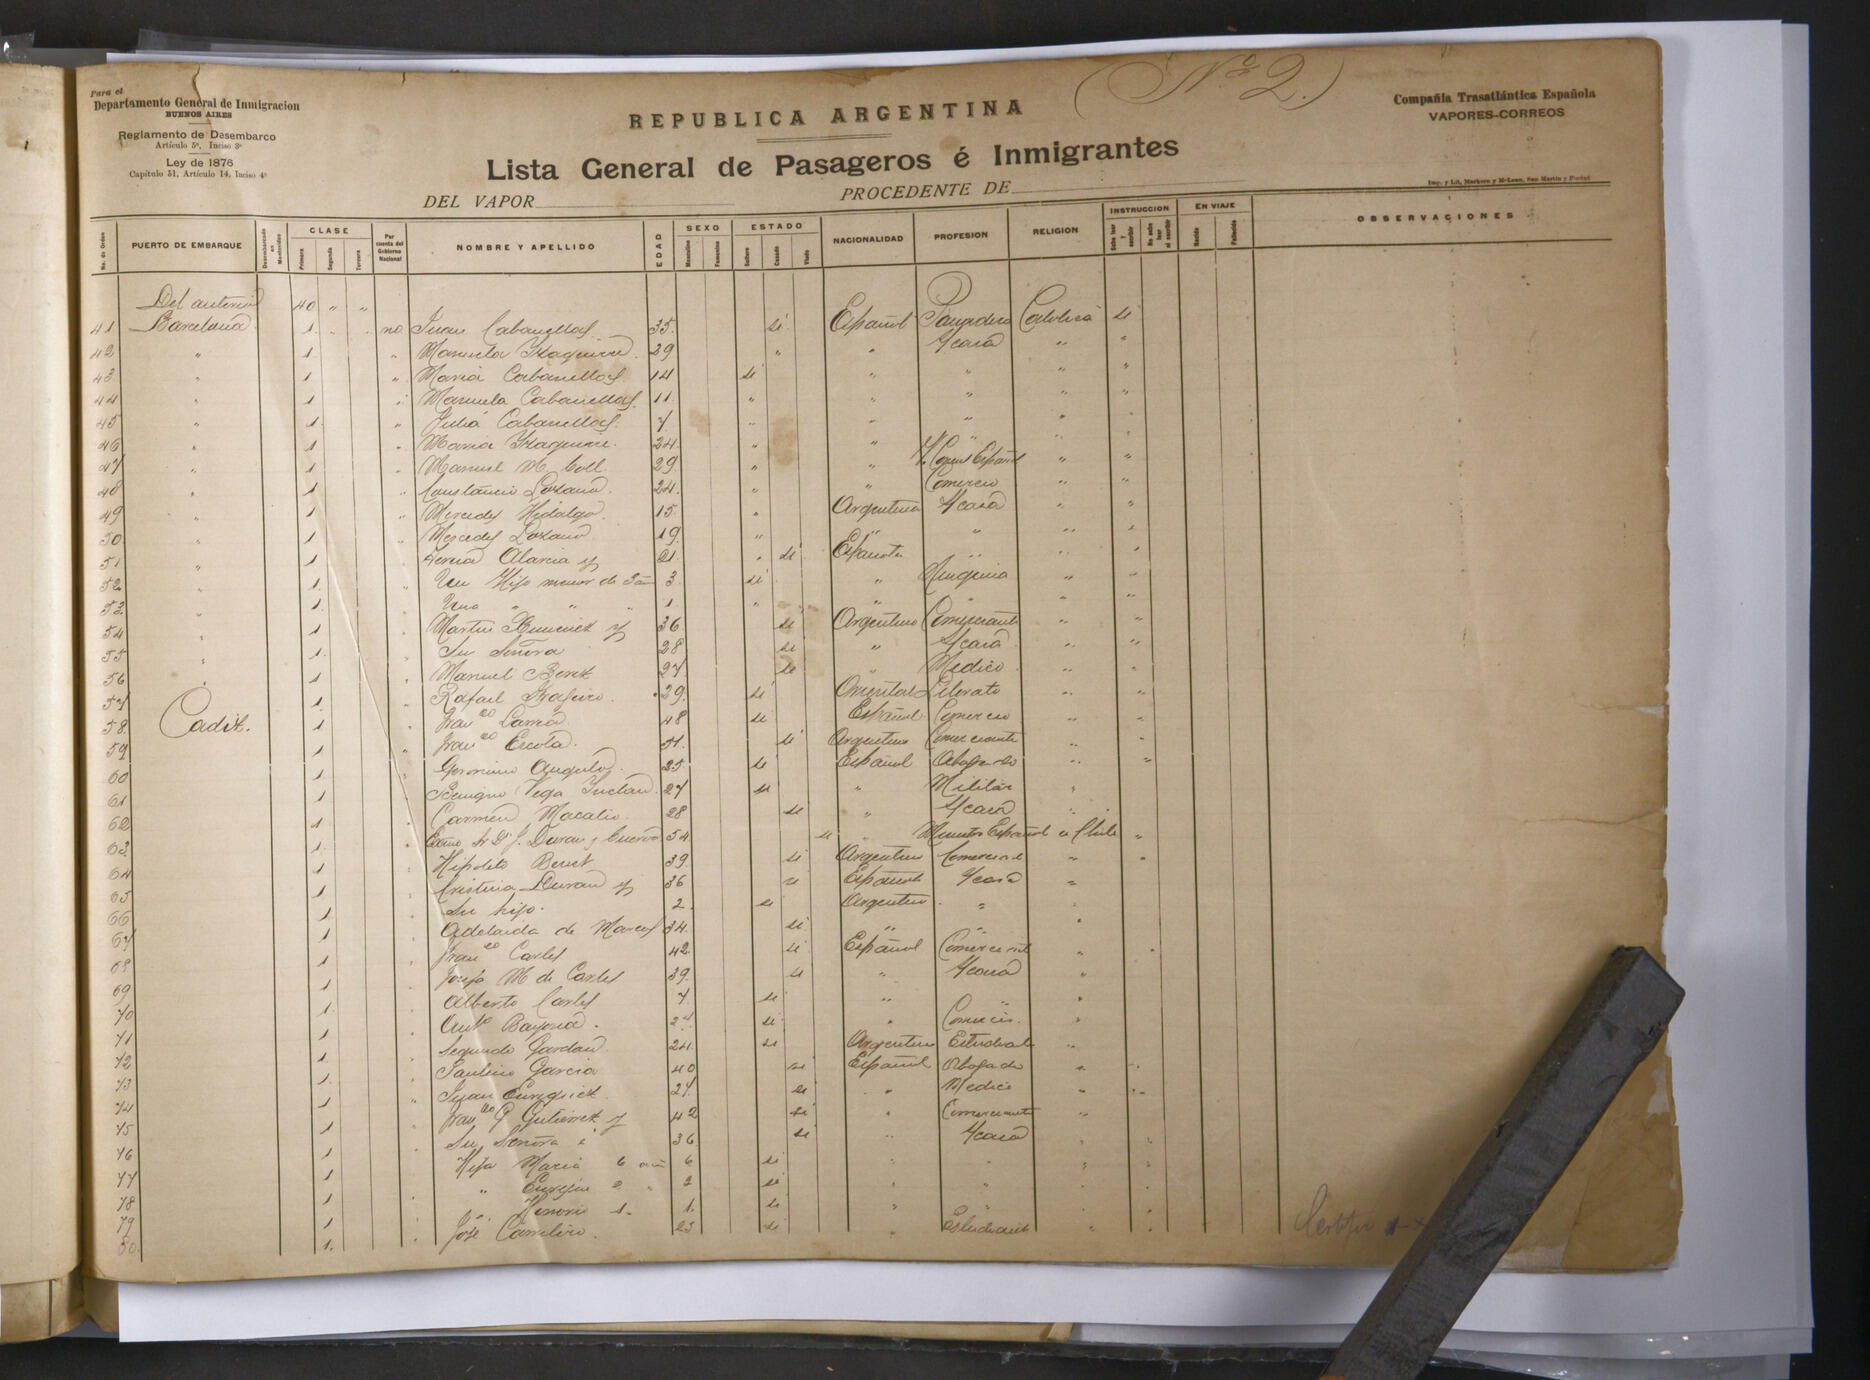 (Nº 2.)
Para el
Departamento General de Inmigracion
BUENOS AIRES
Reglamento de Desembarco
Artículo 5º, Inciso 3º
Ley de 1876
Capítulo 51, Artículo 14, Inciso 4º
REPUBLICA ARGENTINA
Lista General de Pasageros é Inmigrantes
DEL VAPOR PROCEDENTE DE
Compañía Trasatlántica Española
VAPORES-CORREOS
No. de Orden PUERTO DE EMBARQUE Desembarcado en Montevideo CLASE Primera Segunda Tercera Por cuenta del Gobierno Nacional NOMBRE Y APELLIDO EDAD SEXO Masculino Femenino ESTADO Soltero Casado Viudo NACIONALIDAD PROFESION RELIGION INSTRUCCION Sabe leer y escribir No sabe leer ni escribir EN VIAJE Nacido Fallecido OBSERVACIONES
Del anterior 40 " "
41 Barcelona 1 " " no Juan Cabanellas 35 si Español Católica si
42 " 1 " Manuela 29 " " S/casa " "
43 " 1 " Maria Cabanellas 14 si " " " "
44 " 1 " Manuela Cabanellas 11 " " " " "
45 " 1 " Julia Cabanellas 7 " " " " "
46 " 1 " Maria 24 " " " " "
47 " 1 " Manuel M. Coll 29 " " Consul Español " "
48 " 1 " Constancio Lozano 24 " " Comercio " "
49 " 1 " Mercedes Hidalgo 15 " Argentina S/casa " "
50 " 1 " Mercedes Lozano 19 " " " " "
51 " 1 Alarcia y 21 si Española " " "
52 " 1 Un Hijo menor de 3 añ 3 si " Ninguna " "
53 " 1 Uno " " " 1 " " " " "
54 " 1 Martin Jimenez y 36 si Argentino Comerciante " "
55 " 1 Su Señora 28 si " S/casa " "
56 " 1 Manuel Benet 27 si " Medico " "
57 1 Rafael 29 si Oriental Literato " "
58 Cadiz. 1 Fran co Larrea 48 si Español Comercio " "
59 1 Fran co Escola 51 si Argentino Comerciante " "
60 1 Geronimo Angulo 25 si Español Abogado " "
61 1 Benigno Vega Inclan 27 si " Militar "
62 1 Carmen Macalio 28 si " S/casa "
63 1 Exmo Sr Dn J. Duran y Cuervo 54 si " Ministro Español en Chile "
64 1 Hipolito Benet 39 si Argentino Comerciante " "
65 1 Cristina Duran y 36 si Española S/casa "
66 1 Su hijo 2 si Argentino " "
67 1 Adelaida de Marcos 34 si " " "
68 1 Fran co Carles 42 si Español Comerciante " "
69 1 Josefa M de Carles 39 si " S/casa "
70 1 Alberto Carles 7 si " " "
71 1 Anto Bayona 27 si " Comercio "
72 1 Segundo 24 si Argentino Estudiante "
73 1 Paulino Garcia 40 si Español Abogado " "
74 1 Juan Enriquez 27 si " Medico " "
75 1 Fran co P Gutierrez y 42 si " Comerciante "
76 1 Su Señora é 36 si " S/casa " "
77 1 Hija Maria 6 añ 6 si " " " "
78 1 " 2 " 2 si " " " "
79 1 " Honorio 1 " 1 si " " " "
80 1 José Carretero 23 si " Estudiante " "